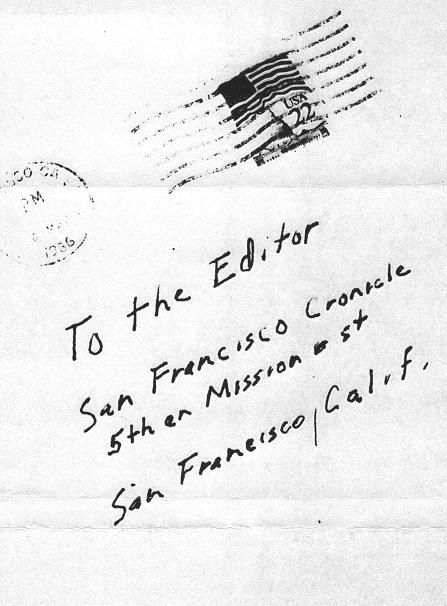 USA
22
CO CA
PM
1986
To the Editor
San Francisco Cronicle
5th en Mission st
San Francisco, Calif.